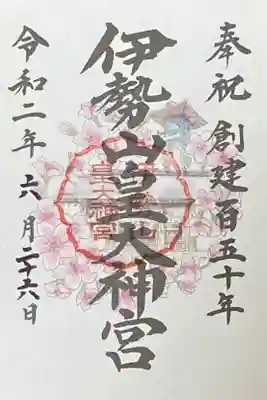 奉祝 創建百五十年
伊勢山皇大神宮
令和二年 六月二十六日
皇大神宮